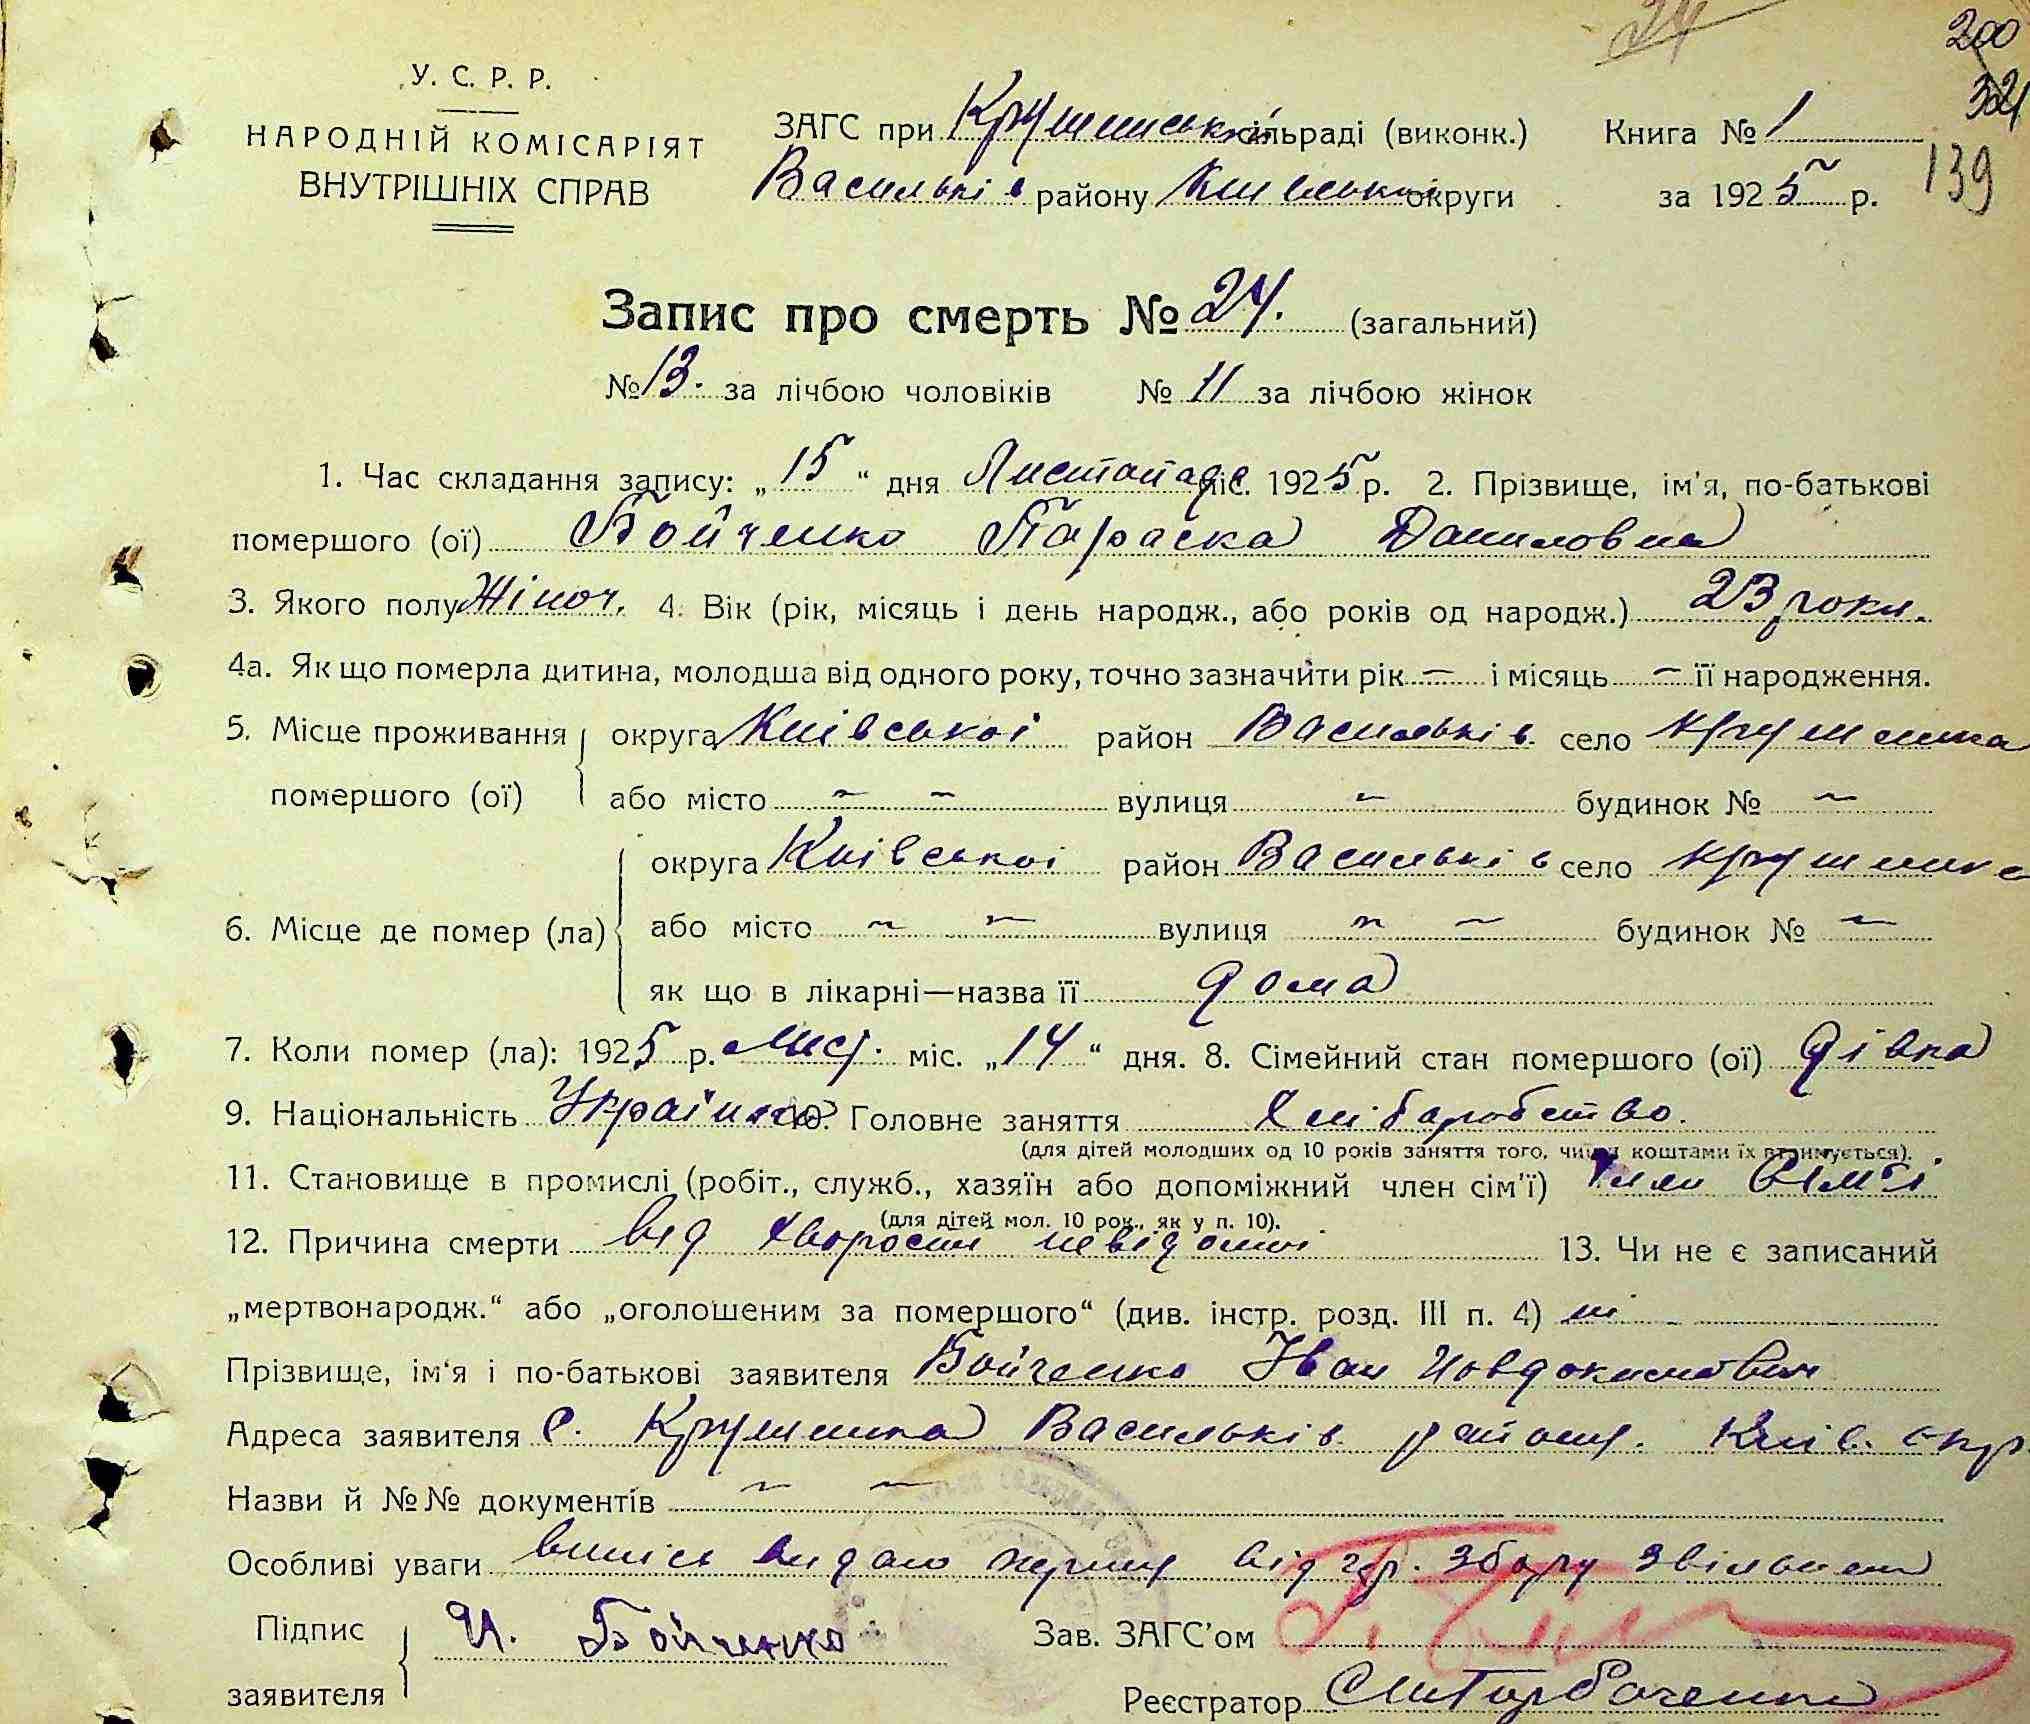 24
200
324
139
У. С. Р. Р.
НАРОДНІЙ КОМІСАРІЯТ
ВНУТРІШНІХ СПРАВ
ЗАГС при Крушинській сільраді (виконк.) Книга № 1
Васильків району Київської округи за 1925 р.
Запис про смерть № 24. (загальний)
№ 13. за лічбою чоловіків № 11 за лічбою жінок
1. Час складання запису: „15“ дня Листопада міс. 1925 р. 2. Прізвище, ім'я, по-батькові
помершого (ої) Бойченко Параска Даниловна
3. Якого полу Жіноч. 4. Вік (рік, місяць і день народж., або років од народж.) 23 роки.
4а. Як що померла дитина, молодша від одного року, точно зазначити рік – і місяць – її народження.
5. Місце проживання округа Київської район Васильків село Крушинка
помершого (ої) або місто – – вулиця – будинок № –
округа Київської район Васильків село Крушинка
6. Місце де помер (ла) або місто – – вулиця – – будинок № –
як що в лікарні—назва її дома
7. Коли помер (ла): 1925 р. Лист. міс. „14“ дня. 8. Сімейний стан помершого (ої) дівка
9. Національність Українка 10. Головне заняття Хліборобство.
(для дітей молодших од 10 років заняття того, чиїми коштами їх втримується).
11. Становище в промислі (робіт., служб., хазяїн або допоміжний член сім'ї) член сімʼї
(для дітей мол. 10 рок., як у п. 10).
12. Причина смерти від хворости невідомої 13. Чи не є записаний
„мертвонародж.“ або „оголошеним за помершого“ (див. інстр. розд. III п. 4) ні
Прізвище, ім'я і по-батькові заявителя Бойченко Іван Иовдокимович
Адреса заявителя с. Крушинка Васильків. району. Київ. окр
Назви й №№ документів – –
Особливі уваги випись видано першу від гер. збору звільнені
Підпис И. Бойченко Зав. ЗАГС'ом
заявителя Реєстратор